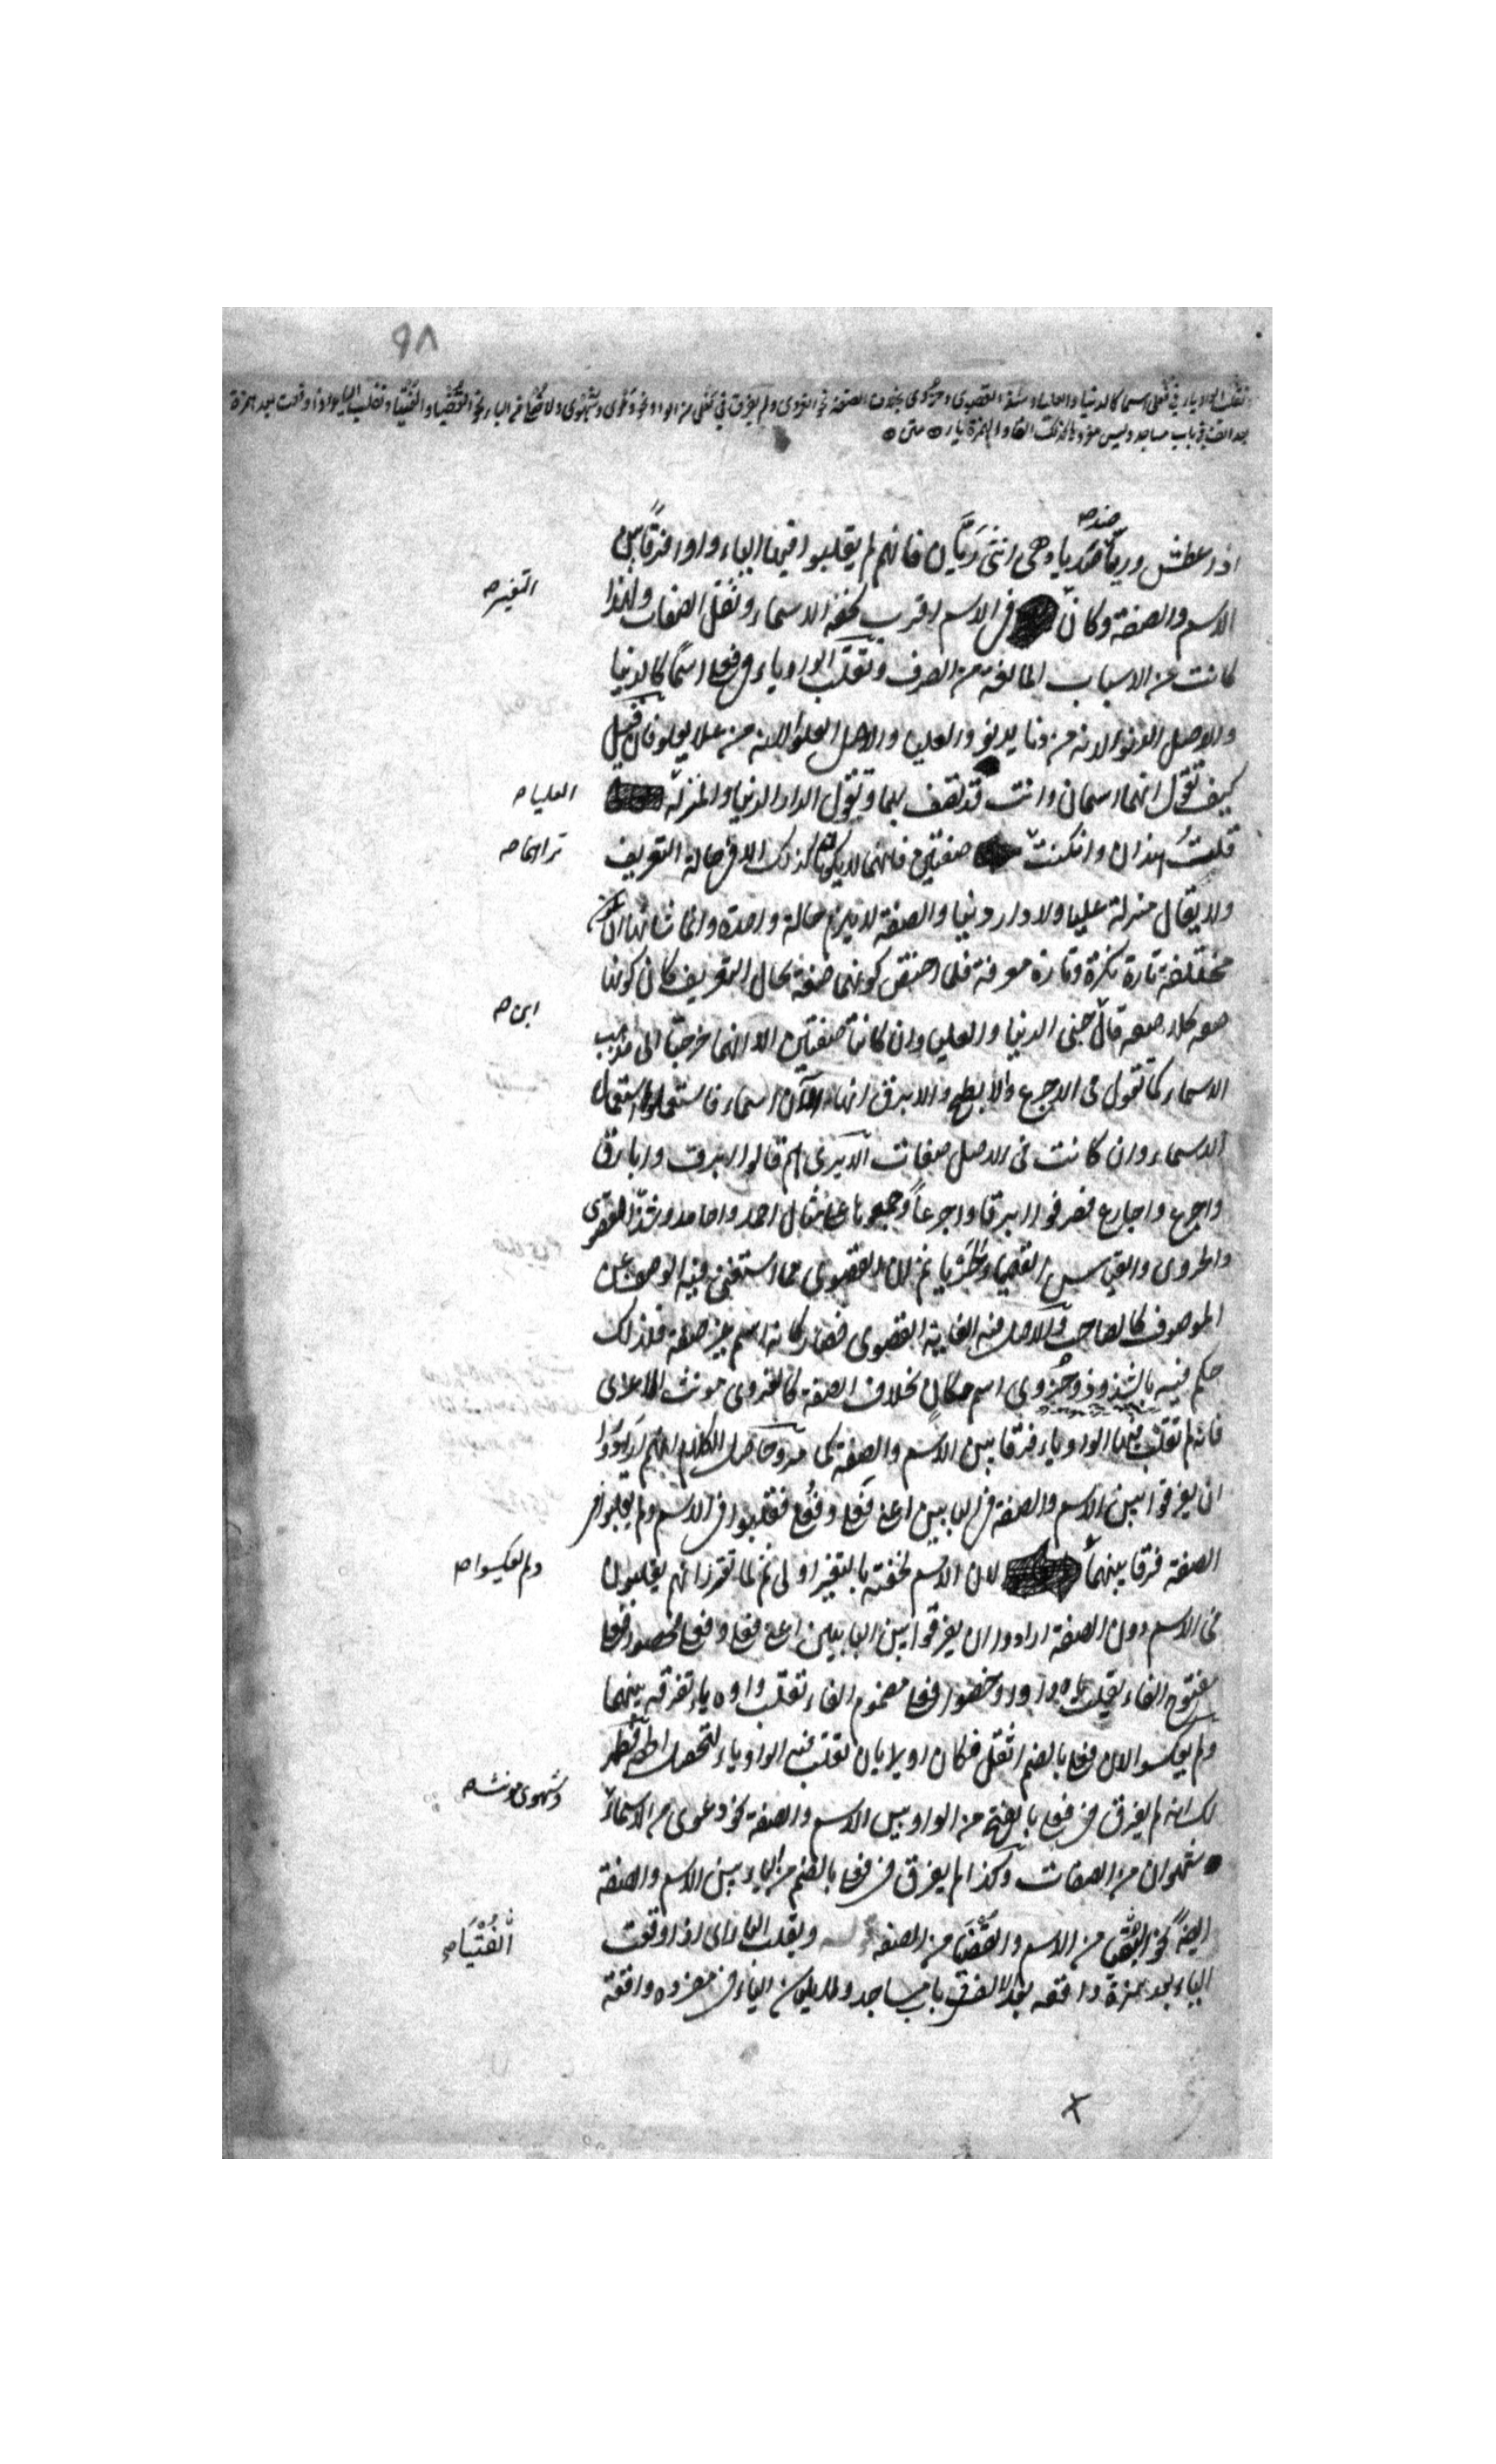 ٩٨
وتقلب الواو ياء في فعلى اسما كالدنيا والعليا وشذ القصوى وحزوى بخلاف الصفة نحو الغزوى ولم يفرق في فعلى من الواو نحو دعوى وشهوى ولا في فعلى من الياء نحو الفتيا والقضيا وتقلب الياء اذا وقعت بعد همزة
بعد الف في باب مساجد وليس مفردها كذلك الفا والهمزة ياء متن
اذا عطش وريا صديا وهي انثى ريان فانهم لم يقلبوا فيهما الياء واوا فرقا بين
ضده صح
الاسم والصفة وكان في الاسم اقرب لخفة الاسماء وثقل الصفات ولهذا
التغيير صح
كانت من الاسباب المانعة من الصرف وتقلب الواو ياء في فعلى اسما كالدنيا
والاصل الدنوا لانه من دنا يدنو والعليا والاصل العلوا لانه من علا يعلو فان قيل
كيف تقول انهما اسمان وانت قد تصف بهما وتقول الدار الدنيا والمنزلة
العليا صح
قلت هذان وان كنت صفتين فانهما لا يكونا كذلك الا في حالة التعريف
تراهما صح
ولا يقال منزلة عليا ولا دار دنيا والصفة لا تلزم حالة واحدة وانما شانها ان تكون
مختلفة تارة نكرة وتارة معرفة فلما اختص كونهما صفة بحال التعريف كان كونها
صفة كلا صفة قال جنى الدنيا والعليا وان كانتا صفتين الا انهما خرجتا الى مذهب
ابن صح
الاسماء كما تقول في الاجرع والابطح والابرق انها الآن اسماء فاستعملوها استعمال
الاسماء وان كانت في الاصل صفات الا ترى انهم قالوا ابرق وابارق
واجرع واجارع فصرفوا ابرقا واجرعا وجمعوها على مثال احمد واحامد وشذ القصوى
والحزوى والقياس القصيا والحزيا ثم ان القصوى مما استغنى فيه الوصف عن
الموصوف كالصاحب والاصل فيه الغاية القصوى فصار كانه اسم غير صفة فلذلك
حكم فيه بالشذوذ وحزوى اسم مكان بخلاف الصفة كالغزوى مونث الاغزى
فانه لم تقلب فيها الواو ياء فرقا بين الاسم والصفة كما مر وحاصل الكلام انهم ارادوا
ان يفرقوا بين الاسم والصفة في البابين اعني فعلى وفعلى فقلبوا في الاسم ولم يقلبوا في
الصفة فرقا بينهما لان الاسم لخفته بالتغيير اولى ثم لما تقرر انهم يقلبون
ولم يعكسوا صح
في الاسم دون الصفة ارادوا ان يفرقوا بين البابين اعني فعلى وفعلى فخصوا فعلى
مفتوح الفاء بقلب ياءه واوا وخصوا فعلى مضموم الفاء بقلب واوه ياء تفرقة بينهما
ولم يعكسوا لان فعلى بالضم اثقل فكان اولى بان تقلب فيه الواو ياء لتحصل
لكنه لم يفرق في فعلى بالفتح من الواو بين الاسم والصفة نحو دعوى من الاسماء
وشهوى مونث صح
شهوان من الصفات وكذا لم يفرق في فعلى بالضم من الياء بين الاسم والصفة
ايضا نحو من الاسم والقضيا من الصفة وتقلب الياء اذا وقعت
الفتيا صح
الياء بعد همزة واقعة بعد الالف في باب مساجد ولا يكون الياء في مفرده واقعة